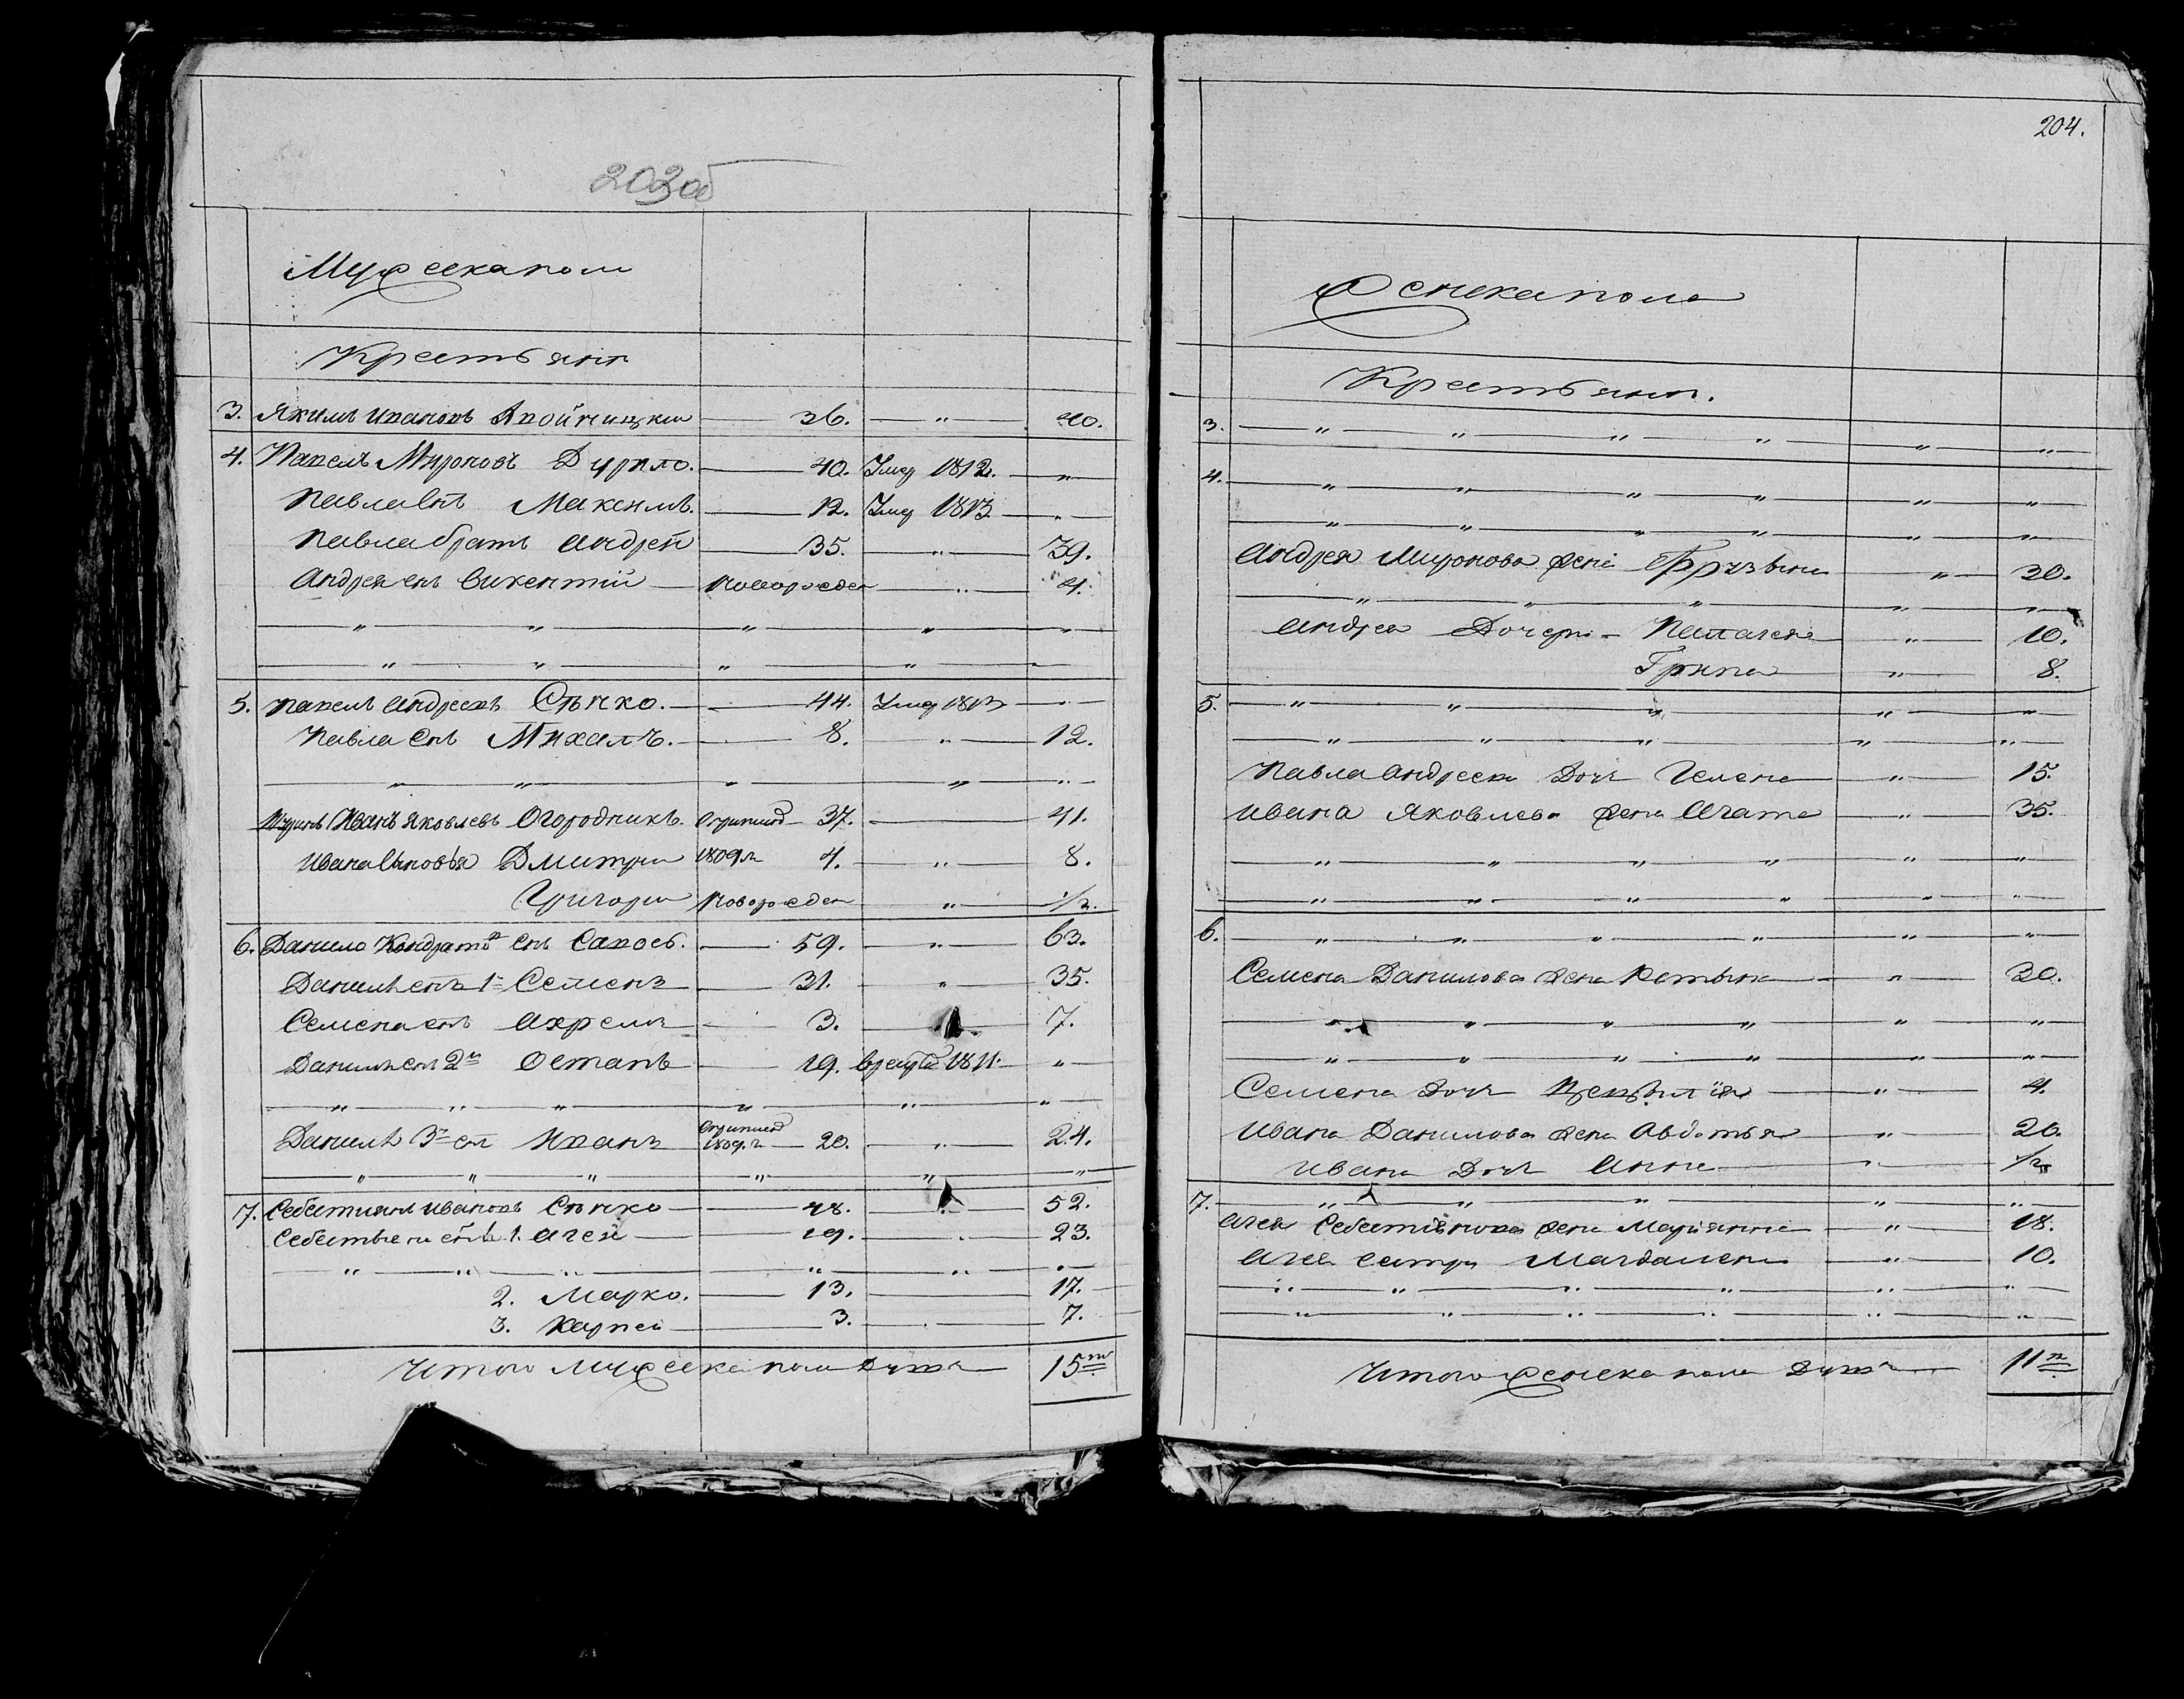 203об
Мужеска пола
Крестьянъ
3. Якимъ Ивановъ Двойницкий — 36. — „ — 40.
4. Павелъ Мироновъ Дурило. — 40. Умер 1812. — „
Павла снъ Максимъ. — 12. Умер 1813 — „
Павла братъ Андрей — 35. — „ — 39.
Андрея снъ Викентий — новорожден — „ — 4.
„ „ „ „ „
„ „ „ „
5. Павелъ Андреевъ Сѣнко. — 44. Умер 1813 — „
Павла Снъ Михалъ. — 8. — „ — 12.
„ „ „ „ „
Шуринъ Иванъ Яковлевъ Огородникъ. 37. — 41.
Ивана Сыновья Дмитрий 1809 г. 4. — „ — 8.
Григорий новорожден — „ — 1/2.
6. Данило Кондратов снъ Савось. — 59. — „ — 63.
Данилы снъ 1й Семенъ — 31. — „ — 35.
Семена снъ Ахремъ — 3. — 7.
Данилы снъ 2й Остапъ — 19. 1811. — „
„ „ „ „ „ „
Данилы 3й снъ Иванъ 1809. г. — 20. — „ — 24.
„ „ „ „ „ „
7. Себестиянъ Ивановъ Сѣнко — 48. — 52.
Себестьяна снъ 1. Агей — 19. — „ — 23.
„ „ „ „ „ „
2. Марко. — 13. — 17.
3. Карпей — 3. — 7.
Итого мужеска пола душъ — 15ть
204.
Женска пола
Крестьянъ.
3. „ „ „ „ „ „
4. „ „ „ „ „ „
„ „ „ „ „ „
Андрея Миронова жена — „ — 30.
„ „ „ „ „
Андрея Дочери — Палагея — „ — 10.
Грипа — „ — 8.
5. „ „ „ „ „
„ „ „ „ „
Павла Андреева Дочь Гелена — „ — 15.
Ивана Яковлева жена Агата — „ — 35.
„ „ „ „ „ „
„ „ „ „ „
6. „ „ „ „ „ „
Семена Данилова жена — „ — 30.
„ „ „ „ „ „
„ „ „ „ „ „
Семена Дочь Цецылия — „ — 4.
Ивана Данилова жена Авдотья — „ — 20.
Ивана Дочь Анна — „ — 1/2
7. „ „ „ „ „
Агея Себестиянова жена Марианна — „ — 18.
Агея сестра Магдалена — „ — 10.
„ „ „ „ „ „
„ „ „ „ „ „
Итого женска пола душъ — 11ть